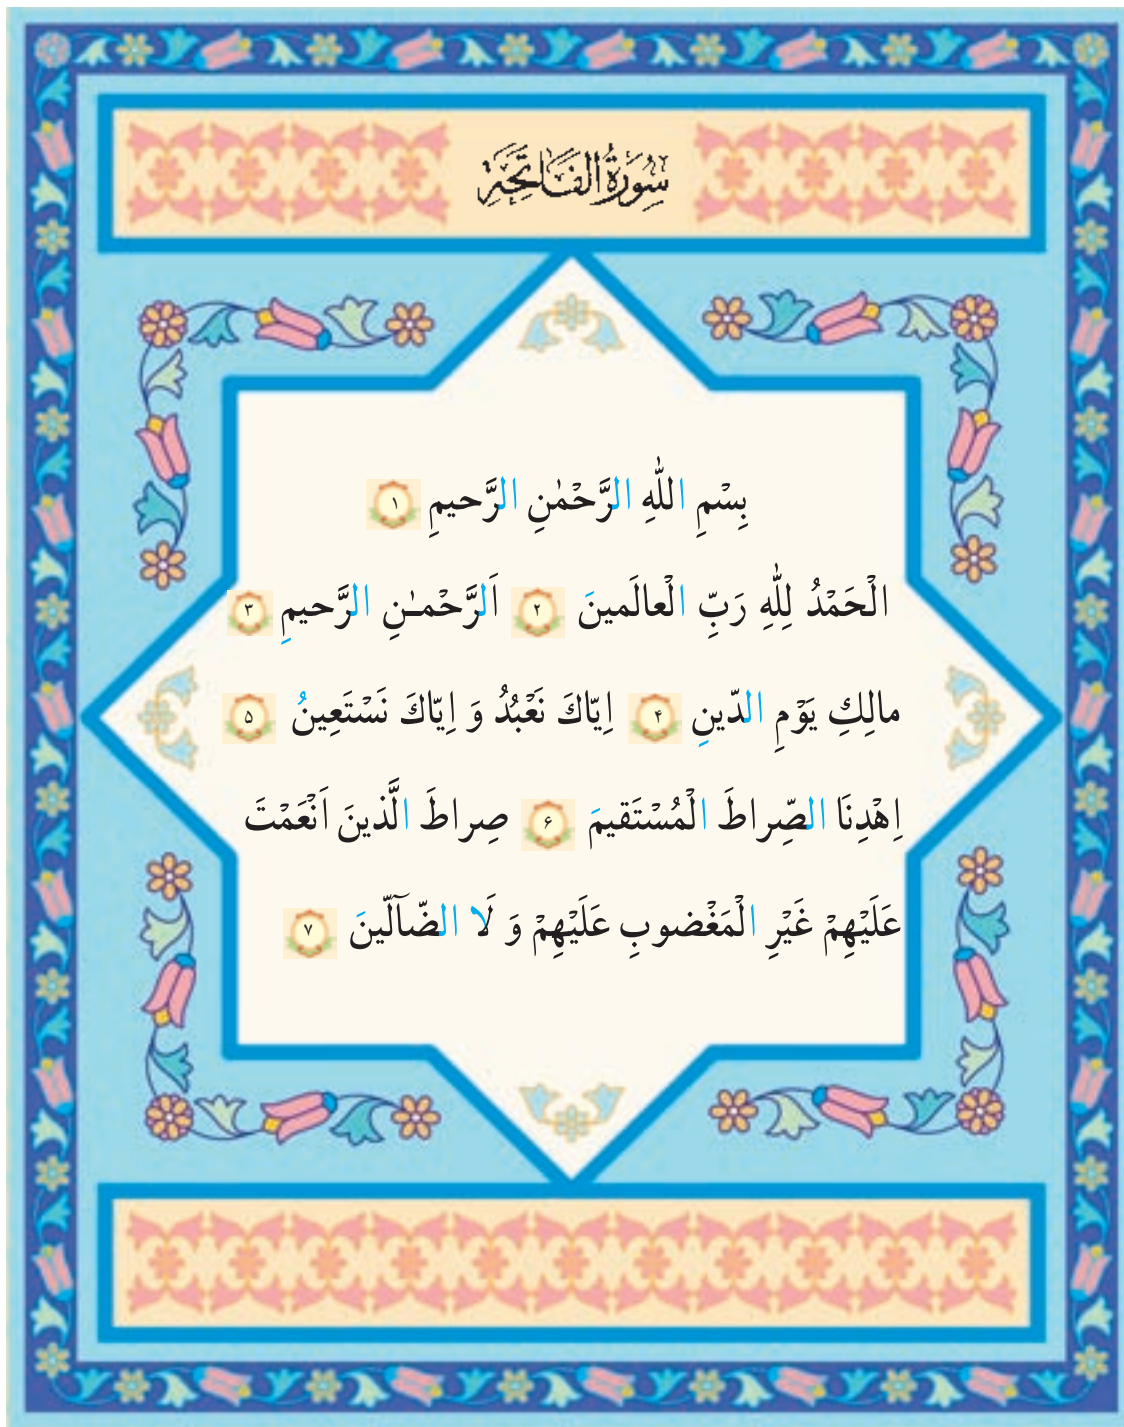 سُورَةُ الفَاتِحَةِ
بِسْمِ اللّٰهِ الرَّحْمٰنِ الرَّحیمِ ۱
الْحَمْدُ لِلّٰهِ رَبِّ الْعالَمینَ ۲ اَلرَّحْمـٰنِ الرَّحیمِ ۳
مالِكِ یَوْمِ الدّینِ ۴ اِیّاكَ نَعْبُدُ وَ اِیّاكَ نَسْتَعِینُ ۵
اِهْدِنَا الصِّراطَ الْمُسْتَقیمَ ۶ صِراطَ الَّذینَ اَنْعَمْتَ
عَلَیْهِمْ غَیْرِ الْمَغْضوبِ عَلَیْهِمْ وَ لَا الضّآلّینَ ۷